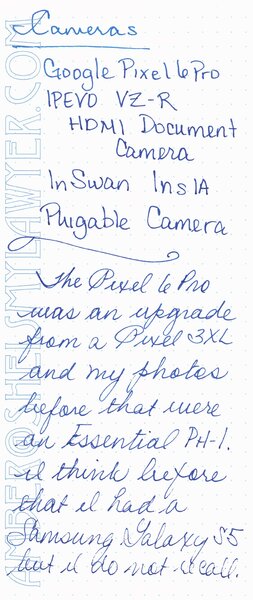 Cameras
Google Pixel 6 Pro
IPEVO VZ-R
HDMI Document
Camera
InSwan INS1A
Plugable Camera
The Pixel 6 Pro
was an upgrade
from a Pixel 3XL
and my photos
before that were
an Essential PH-1.
I think before
that I had a
Samsung Galaxy S5
but I do not recall.
AMBER@SHEISMYLAWYER.COM